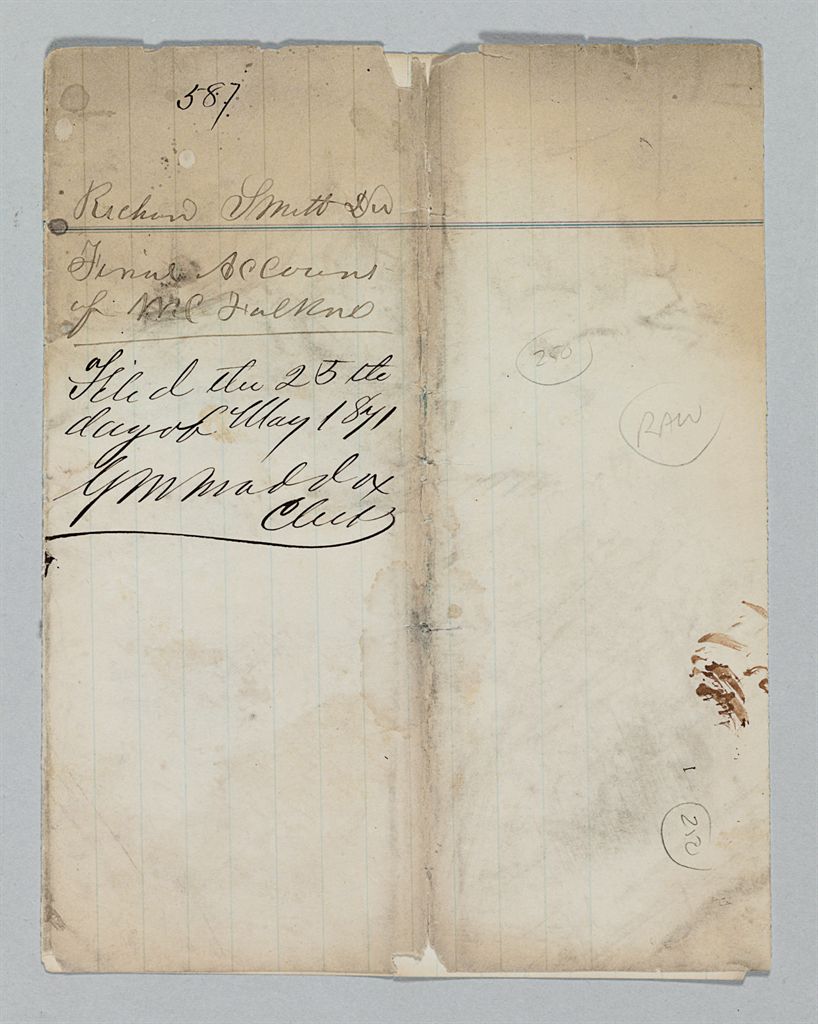 587
Richard Smith Dec
Final Account
of W C Falkne
Filed the 25th
day of May 1871
G M Maddox
Clerk
250
RAW
250